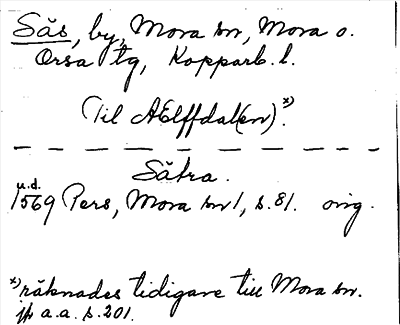 Sås, by, Mora sn, Mora o.
Orsa tg, Kopparb. l.
(Til AElffdal(en).*)
Såtra.
u.d.
1569 Pers, Mora sn 1, s. 81. orig.
*) räknades tidigare till Mora sn.
jfr a.a. s. 201.